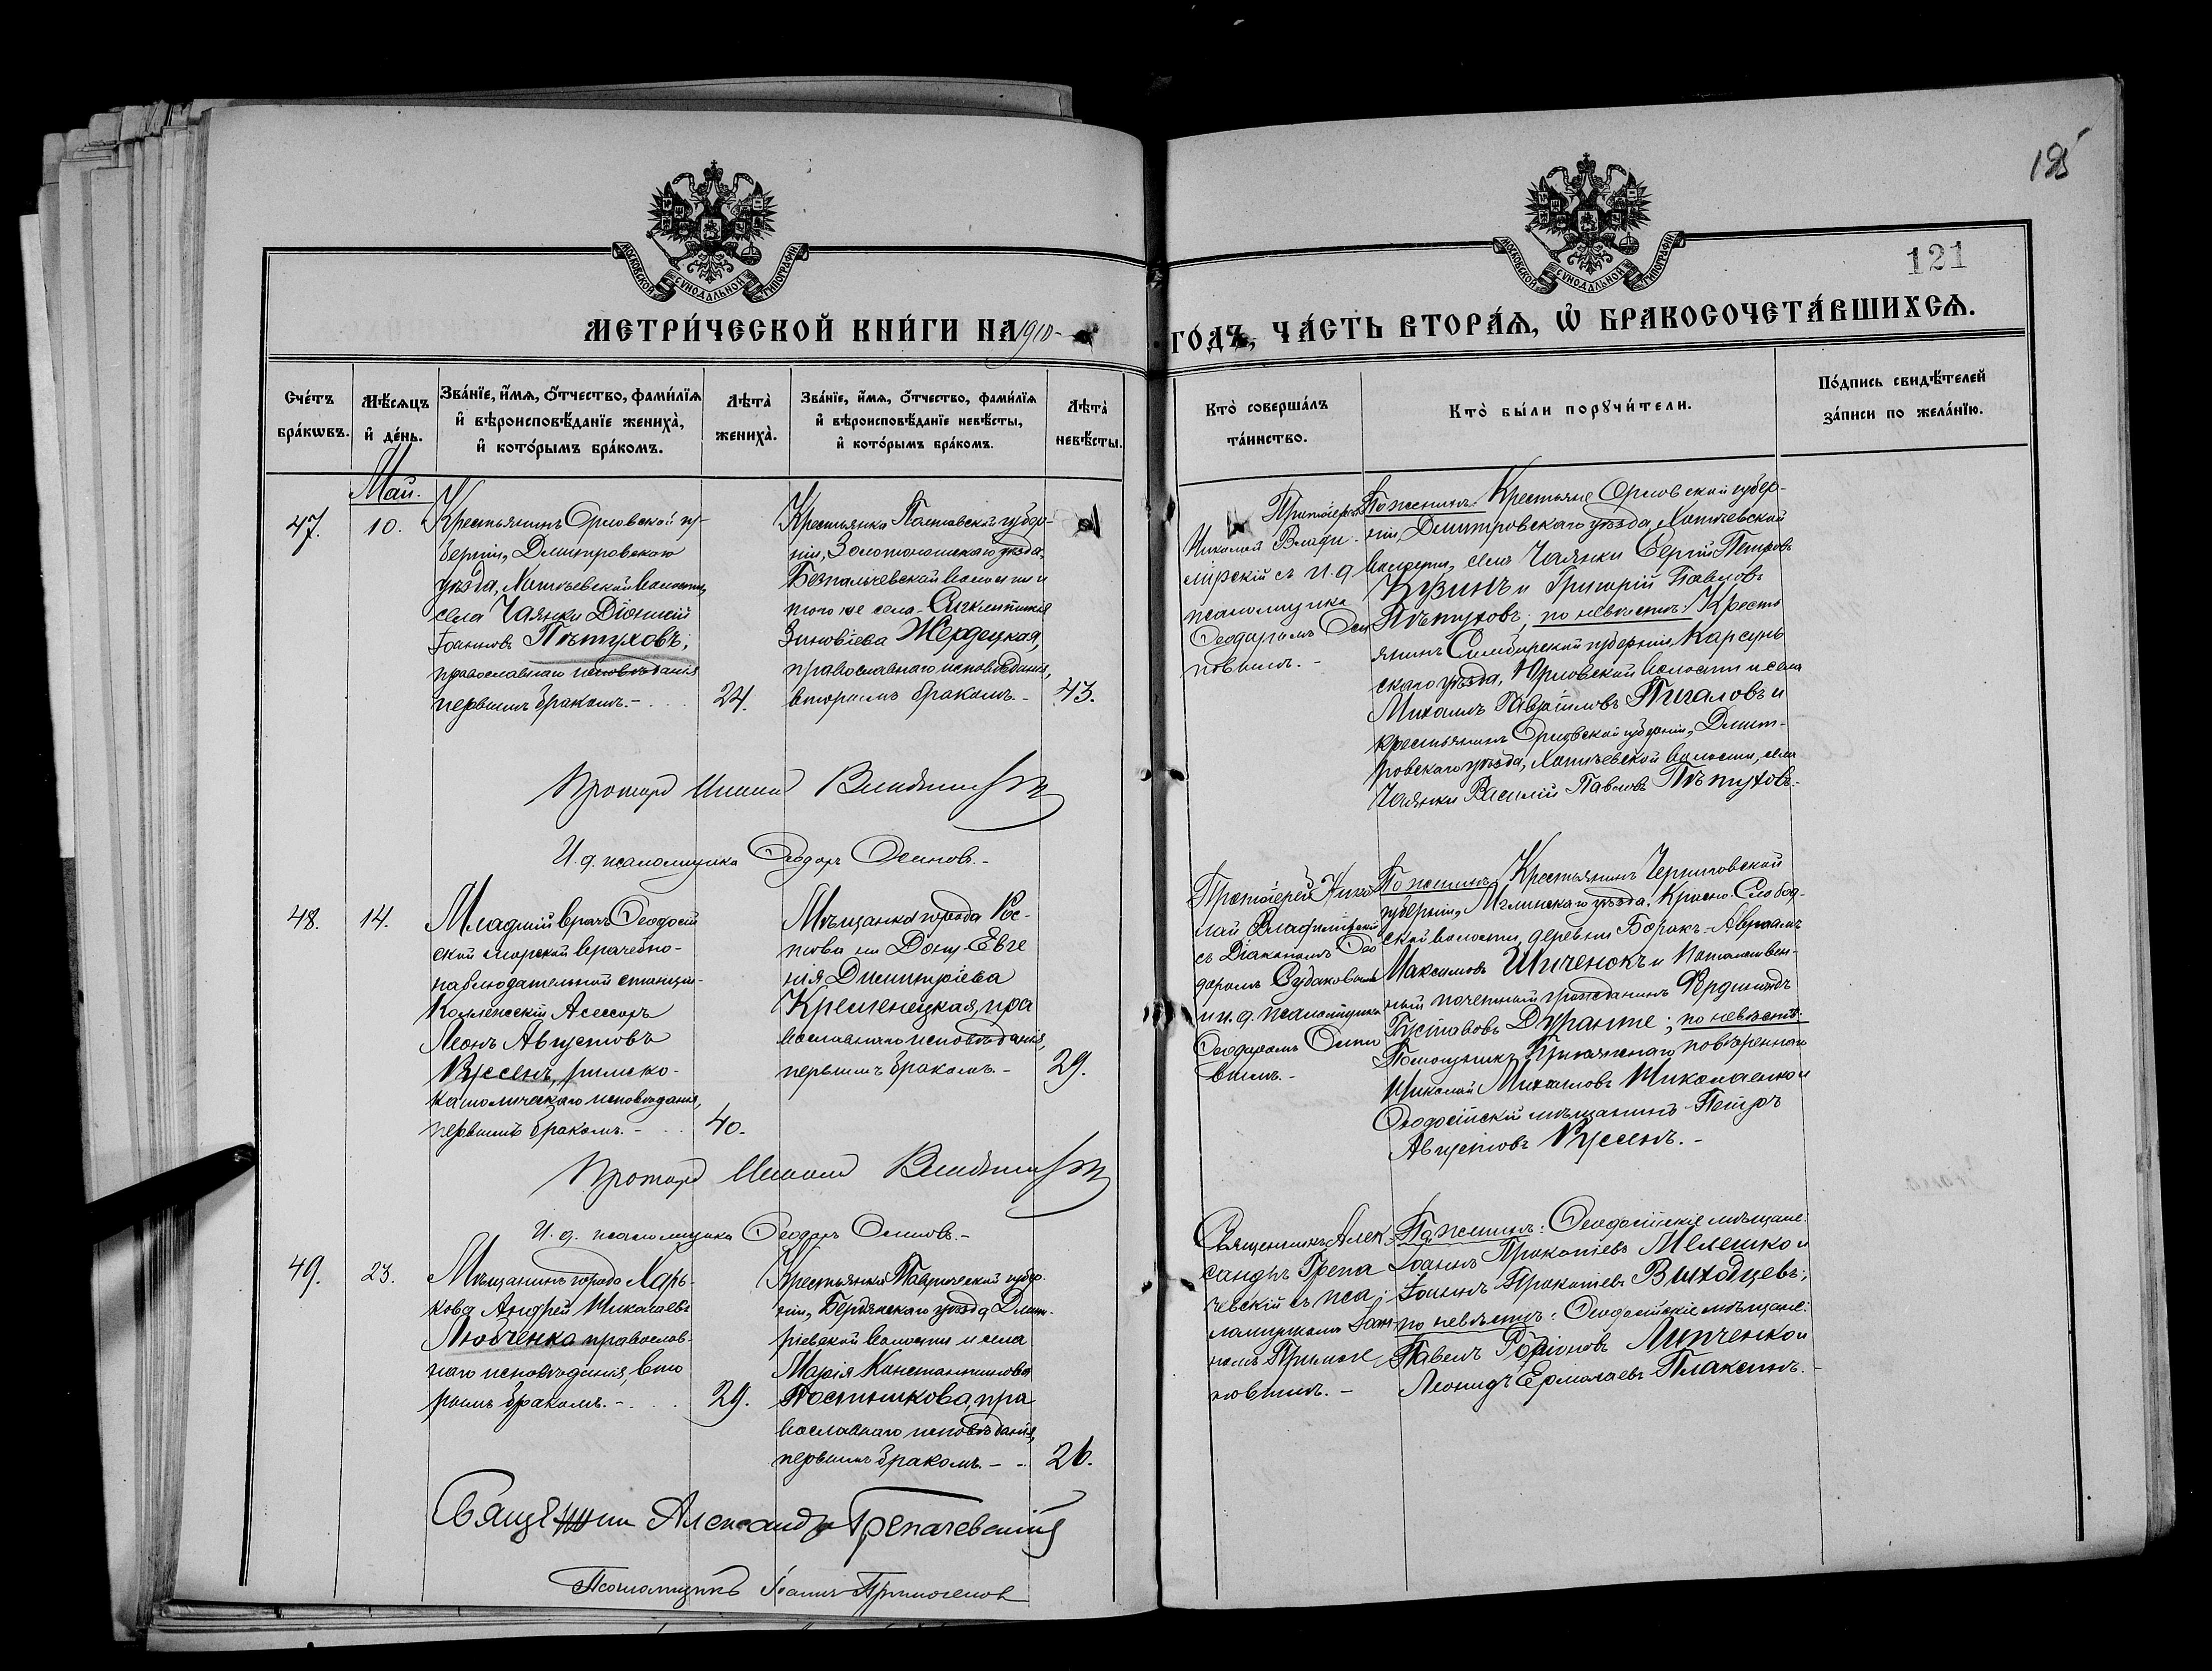 125
121
МОСКОВСКОЙ СѴНОДАЛЬНОЙ ТИПОГРАФІИ
МОСКОВСКОЙ СѴНОДАЛЬНОЙ ТИПОГРАФІИ
МЕТРИ́ЧЕСКОЙ КНИ́ГИ НА 1910
ГО́ДЪ, ЧА́СТЬ ВТОРА́Ѧ, Ѡ҆ БРАКОСОЧЕТА́ВШИХСѦ.
Сче́тъ бра́кωвъ.
Мѣ́сѧцъ и҆ де́нь.
Зва́нїе, и҆́мѧ, ѻ҆́тчество, фами́лїѧ
и҆ вѣроисповѣ́данїе жениха̀,
и҆ кото́рымъ бра́комъ.
Лѣта̀ жениха̀.
Зва́нїе, и҆́мѧ, ѻ҆́тчество, фами́лїѧ
и҆ вѣроисповѣ́данїе невѣ́сты,
и҆ кото́рымъ бра́комъ.
Лѣта̀ невѣ́сты.
Кто̀ соверша́лъ та́инство.
Кто̀ бы́ли порꙋчи́тели.
По́дпись свидѣ́телей за́писи по жела́нїю.
Май.
47.
10.
Крестьянинъ Орловской гу-
берніи, Дмитровскаго
уѣзда, Хотьевской волости,
села Чаянки Діонисій
Іоанновъ Пѣтуховъ,
православнаго исповѣданія
первымъ бракомъ.-
24.
Крестьянка Полтавской губер-
ніи, Золотоношскаго уѣзда,
Безпальчевской волости и
того же села
Зиновіева Жердецкая,
православнаго исповѣданія,
вторымъ бракомъ.-
43.
Протоіерей
Николай Влади-
мірскій съ и.д.
псаломщика
Ѳеодоромъ Оси
повымъ.-
По женихѣ: Крестьяне Орловской губер-
ніи Дмитровскаго уѣзда, Хотьевской
волости, села Чаянки Сергій Петровъ
Кузинъ и Григорій Павловъ
Пѣтуховъ; по невѣстѣ: Кресть
янинъ Симбирской губерніи, Карсун-
скаго уѣзда, волости и села
Михаилъ Пигаловъ и
крестьянинъ Орловской губерніи, Дмит-
ровскаго уѣзда, Хотьевской волости, села
Чаянки Василій Павловъ Пѣтуховъ.-
Протоіерей Николай Владимірскій
И.д. псаломщика Ѳеодоръ Осиповъ.-
48.
14.
Младшій врачъ Ѳеодосій
ской морской врачебно-
наблюдательной станціи-
Коллежскій Асессоръ
Леонъ Августовъ
Руссенъ, римско-
католическаго исповѣданія,
первымъ бракомъ.-
40.
Мѣщанка города Рос-
това на Дону Евге
нія Димитріева
Кременецкая, пра
вославнаго исповѣданія,
первымъ бракомъ.-
29.
Протоіерей Нико
лай Владимірскій
съ Діакономъ Ѳео
доромъ Судаковымъ
и и.д. псаломщика
Ѳеодоромъ Осипо
вымъ.-
По женихѣ: Крестьянинъ Черниговской
губерніи, Мглинскаго уѣзда, Красно-Слобод-
ской волости, деревни Борокъ-Авраамъ
Максимовъ Шиченокъ и Потомствен-
ный почетный гражданинъ Фердинандъ
Густавовъ Дуранте; по невѣстѣ:
Помощникъ Присяжнаго повѣреннаго
Николай Михаиловъ Николаенко и
Ѳеодосійскій мѣщанинъ-Петръ
Августовъ Руссенъ.-
Протоіерей Николай Владимірскій
И.д. псаломщика Ѳеодоръ Осиповъ.-
49.
23.
Мѣщанинъ города Харь-
кова Андрей Николаевъ
Любченко православ-
наго исповѣданія, вто
рымъ бракомъ.-
29.
Крестьянка Таврической губер-
ніи, Бердянскаго уѣзда, Дмит-
ріевской волости и села
Марія Константинова
Постникова, пра
вославнаго исповѣданія,
первымъ бракомъ.-
26.
Священникъ Алек-
сандръ Трепа
чевскій съ пса-
ломщикомъ Іоан-
номъ Примоге
новымъ.-
По женихѣ: Ѳеодосійскіе мѣщане:
Іоаннъ Прокопіевъ Мелешко и
Іоаннъ Прокопіевъ Выходцевъ;
по невѣстѣ: Ѳеодосійскіе мѣщане:
Павелъ Родіоновъ Липченко и
Леонидъ Ермолаевъ Плаксинъ.-
Священникъ Александръ Трепачевскій
Псаломщикъ Іоаннъ Примогеновъ